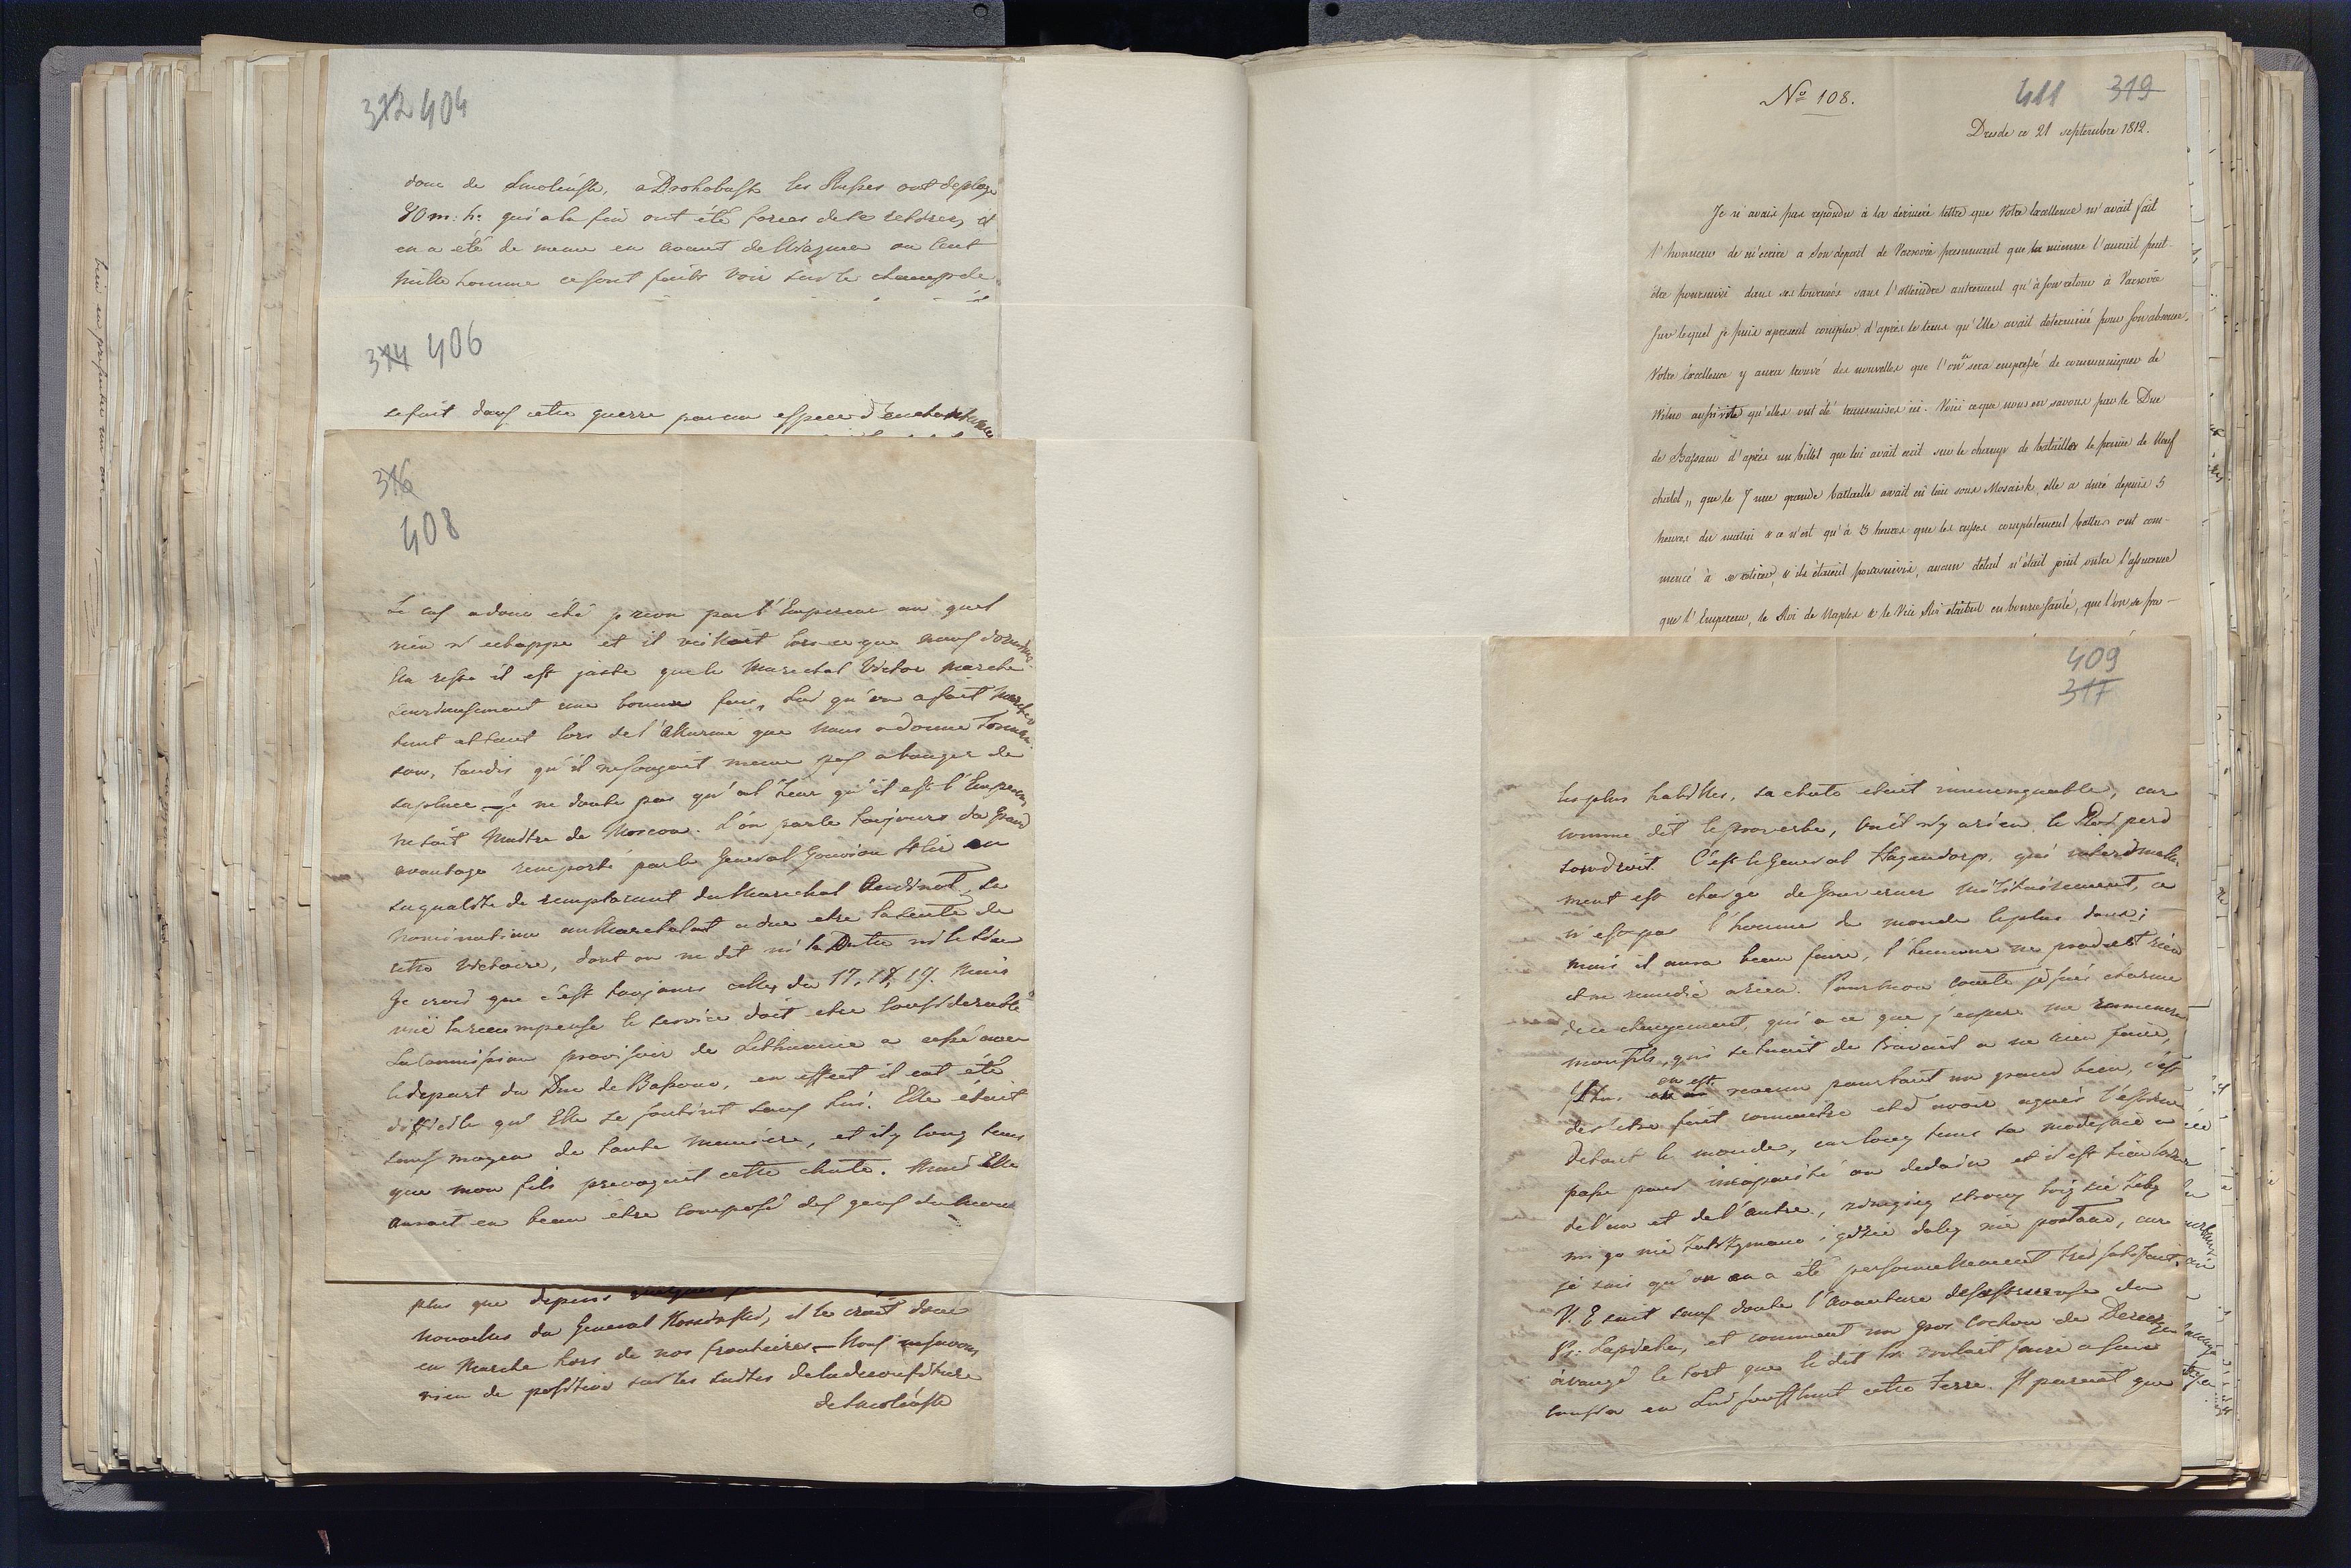 312 404
donc de Smolensk, a Drohobusk les Russes ont deploye
70 m: h: qui a la fin ont été forces de se retirer, il
en a été de meme en avant de Wiazma ou Cent
Mille homme ce sont faits voir sur le champ de
314 406
se fait dans cette guerre par un espece d'enchantement
316
408
Le cas a donc été prevu par l'Empereur au quel
rien n'echappe et il veilloit lorsque nous dormions.
Au reste il est juste que le Marechal Victor marche
une bonne fois, lui qu'on a fait marcher
tant et tant lors de l'Allarme que nous a donné Tormas-
sow, tandis qu'il ne songoit meme pas a bouger de
sa place — Je ne doute pas qu'al heur qu'il est l'Empereur
ne soit Maitre de Moscou. L'on parle toujours du grand
avantage remporté par le General Gouvion St Cir en
sa qualité de remplacant du Marechal Oudinot, sa
nomination au Marechalat a due etre la suite de
cette Victoire, dont on ne dit ni la Datte ni le lieu
Je crois que c'est toujours celles du 17, 18, 19. Mais
vüe la recompense le service doit etre considerable
La Commission provisoir de Lithuanie a cessé avec
le depart du Duc de Bassano, en effect il eut été
difficile qu'Elle se soutint sans lui. Elle étoit
sans moyen de toute maniere, et il y long tems
que mon fils prevoyoit cette chute. Mais Elle
auroit eu beau étre composé des gens du Monde
plus que depuis quelques
nouvelles du General Kosinski, il le croit donc
en Marche hors de nos frontieres — Nous ne savons
rien de positive sur les suites de la deconfiture
de Smolensk
No 108.
411 319
Dresde ce 21 septembre 1812.
Je n'avais pas repondu à la derniere lettre que Votre Excellence m'avait fait
l'honneur de m'ecrire a Son depart de Varsovie presumant que la mienne l'aurait peut-
être poursuivi dans ses tournées sans l'atteindre autrement qu'à son retour à Varsovie
sur lequel je puis apresent compter d'après le tems qu'Elle avait determiné pour son absence,
Votre Excellence y aura trouvé des nouvelles que l'on se sera empressé de communiquer de
Wilno aussivite qu'elles ont été transmises ici. Voici ceque nous en savons par le Duc
de Bassano d'après un billet que lui avait ecrit sur le champ de bataille le prince de Neuf
chatel „ que le 7 une grande battaille avait eu lieu sous Mosaisk, elle a duré depuis 5
heures du matin & ce n'est qu'à 3 heures que les russes complètement battus ont com-
mencé à se retirer, & ils étaient poursuivis, aucun détail n'était joint outre l'assurance
que l'Empereur, le Roi de Naples & le Vice Roi étaient en bonne santé, que l'on se pro-
409
317
les plus habilles, sa chute etait immenquable, car
comme dit le proverbe, Ou il n'y a rien, le Roi perd
son droit. C'est le General Hagendorp, qui
ment est charge de Gouverner militairement, ce
n'est pas l'homme du monde le plus doux;
mais il aura beau faire, l'humeur ne produit rien
et ne remedie a rien. Pour mon compte je suis charme
de ce changement, qui a ce que j'espere me ramenera
mon fils, qui se tuait de travail a ne rien faire,
en est revenu pourtant un grand bien, c'est
de s'etre fait connoitre et d'avoir aquis l'estime
de tout le monde, car long tems sa modestie a
passe pour incapacité ou dedain et il est bien loin
de l'un et de l'autre,
car
je sais qu'on en a été personnellement très satisfait.
V. E. sait sans doute l'avanture desastreuse du
et comment un gros cochon de
a vangé le tort que le dit voulait faire a son
cousin en lui soufflant cette terre. Il paroit que